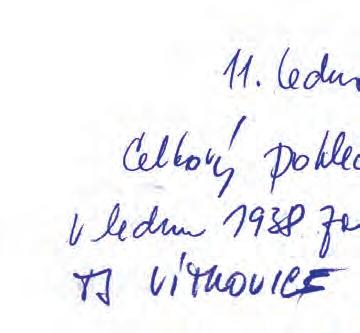 11. ledna
Celkový pohled
v lednu 1938 za
TJ VÍTKOVICE